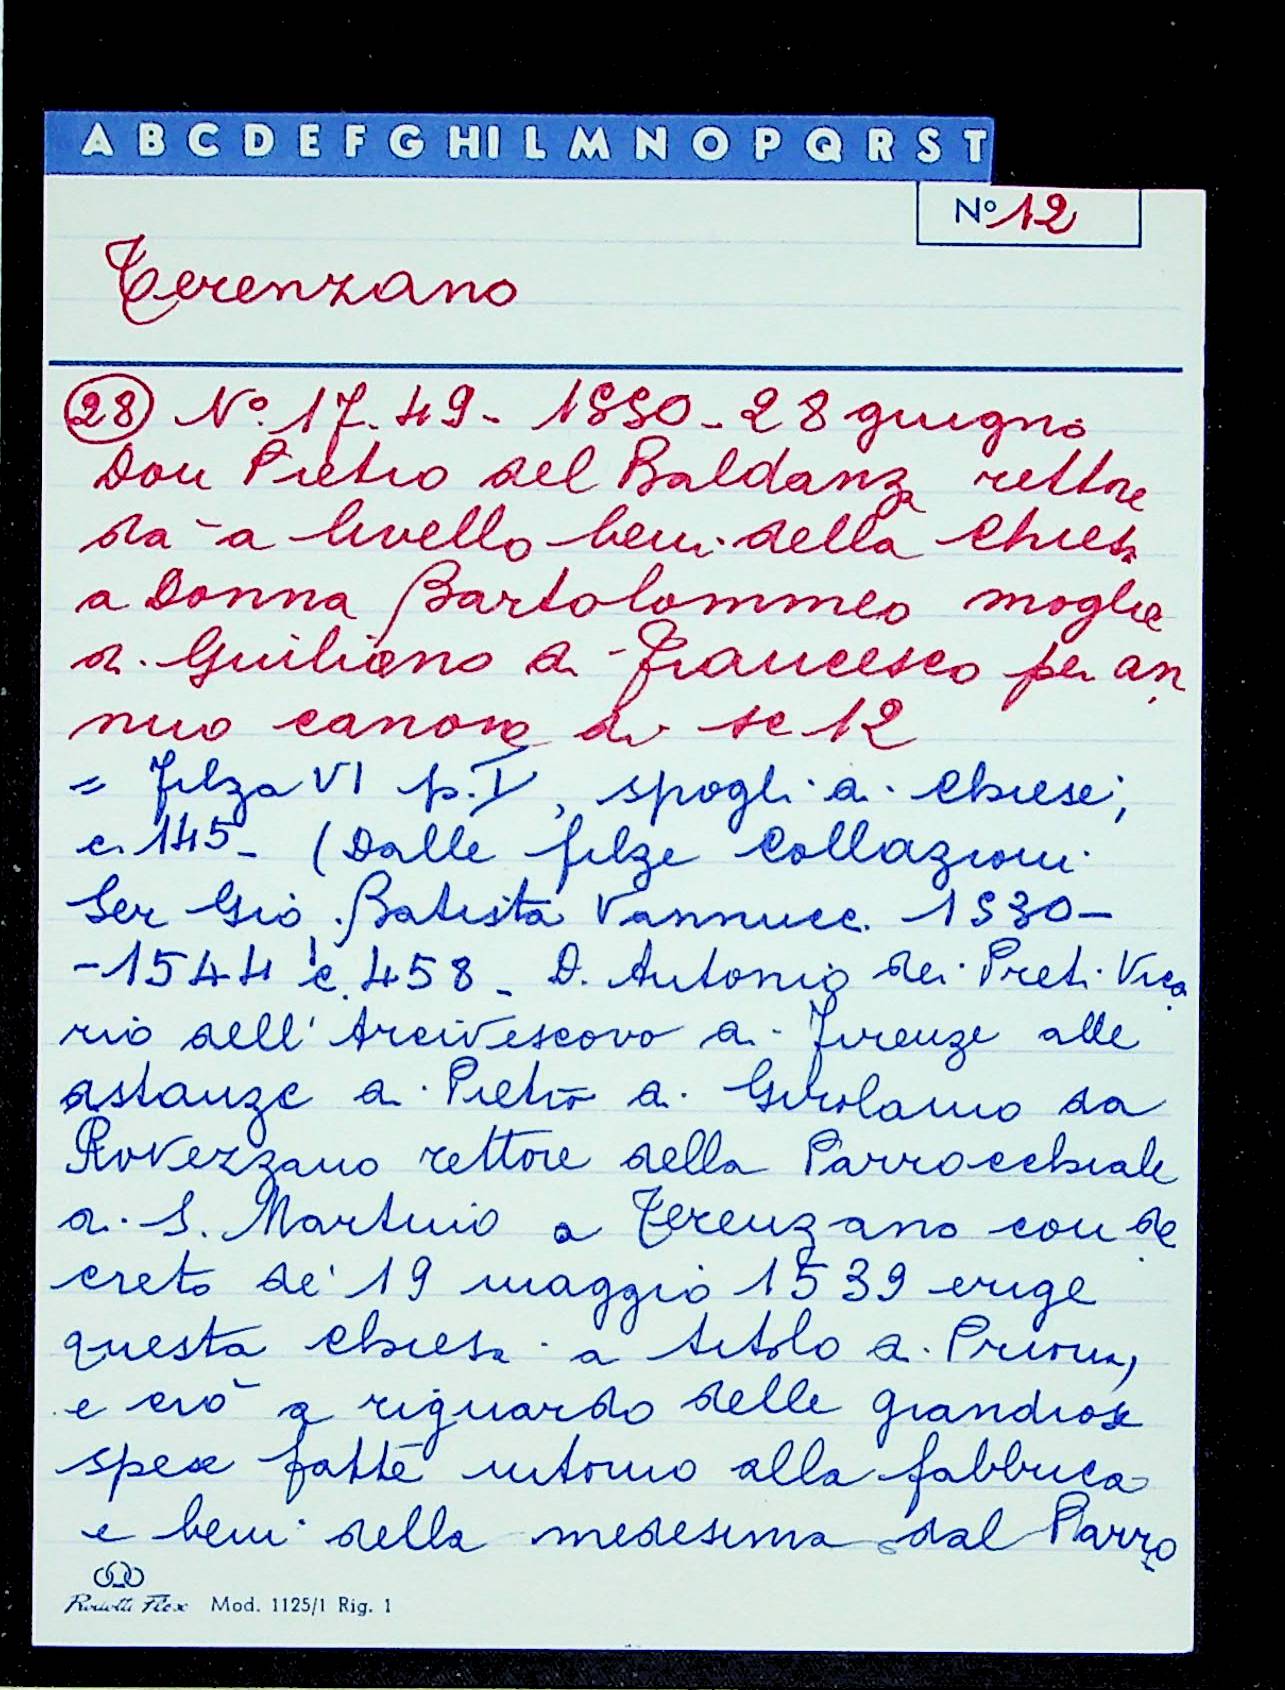 A B C D E F G HI L M N O P Q R S T
N° 12
Terenzano
28 N° 17.49 - 1550 - 28 giugno
Don Pietro del Baldanza rettore
da a livello beni della Chiesa
a Donna Bartolommeo moglie
di Guiliano di Francesco per an
nuo canone di sc 12
= filza VI p. I, spogli di Chiese,
c. 145 - (Dalle filze Collazioni
Ser Gio. Batista Vannucc. 1530-
-1544 c. 458 - D. Antonio dei Preti Vica
rio dell' Arcivescovo di Firenze alle
astanze di Pietro di Girolamo da
Rovezzano rettore della Parrocchiale
di S. Martino a Terenzano con de
creto de' 19 maggio 1539 erige
questa chiesa a titolo di Prioria,
e ciò a riguardo delle grandiose
spese fatte intorno alla fabbrica
e beni della medesima dal Parro
Mod. 1125/1 Rig. 1